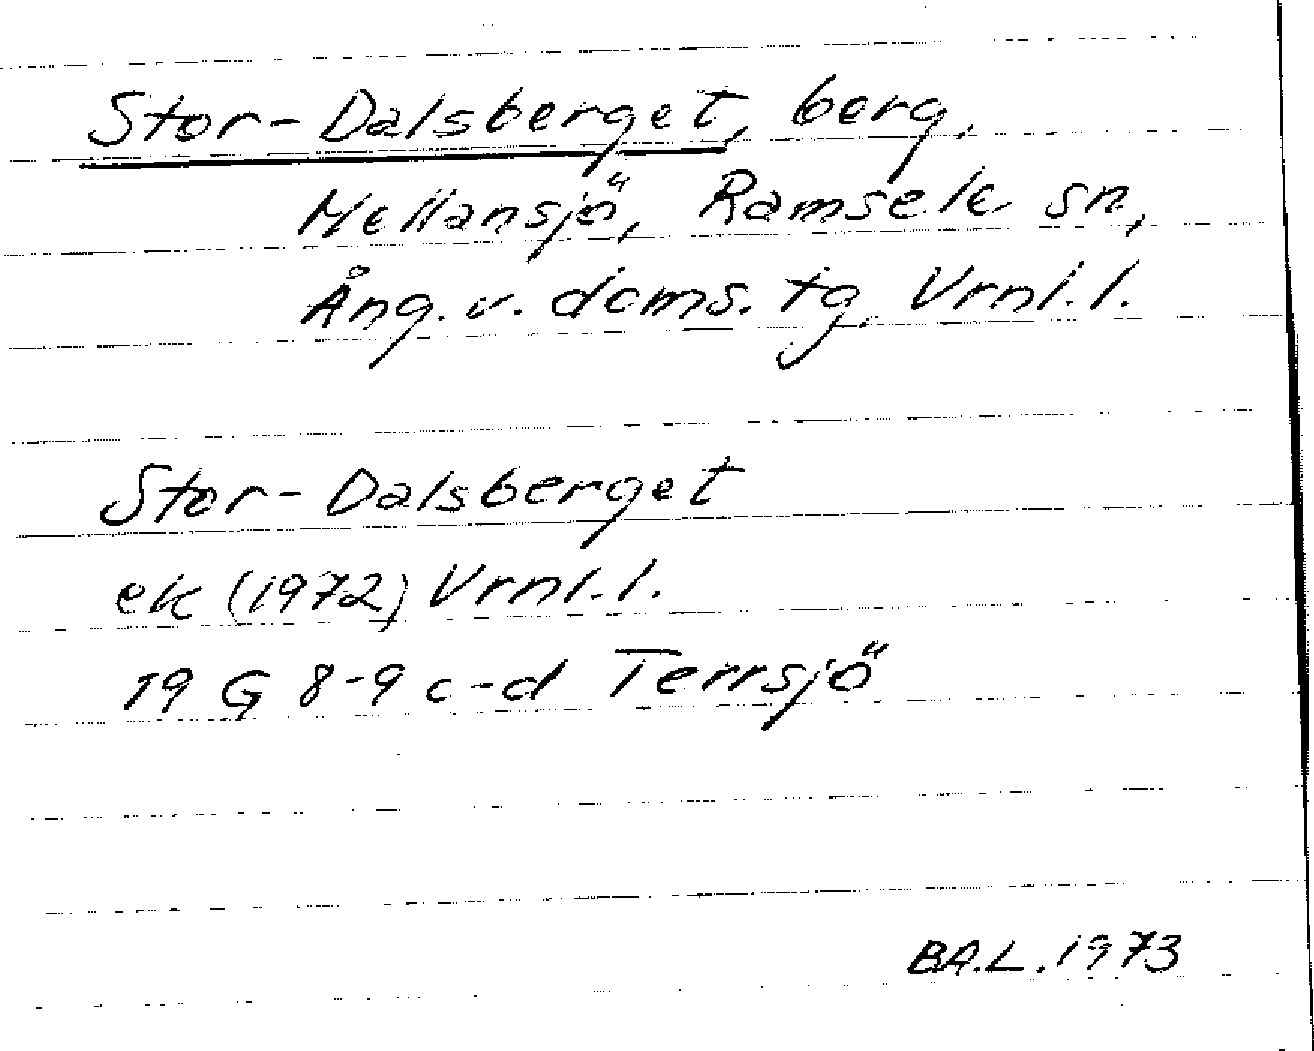 Stor-Dalsberget, berg,
Mellansjö, Ramsele sn,
Ång. v. doms. tg, Vrnl. l.
Stor-Dalsberget
ek (1972) Vrnl. l.
19 G 8-9 c-d Terrsjö
BA.L. 1973